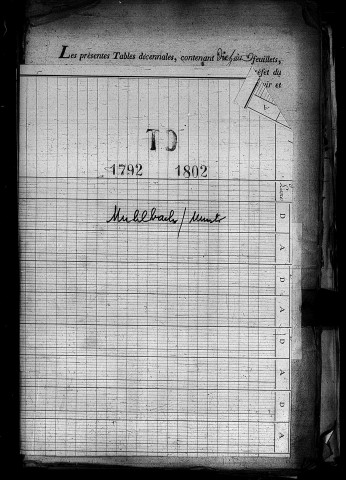 Les présentes Tables décennales, contenant feuillets,
éfet du
oir et
A
TD
1792 1802
Muhlbach / Munster
D
A
D
A
D
A
D
A